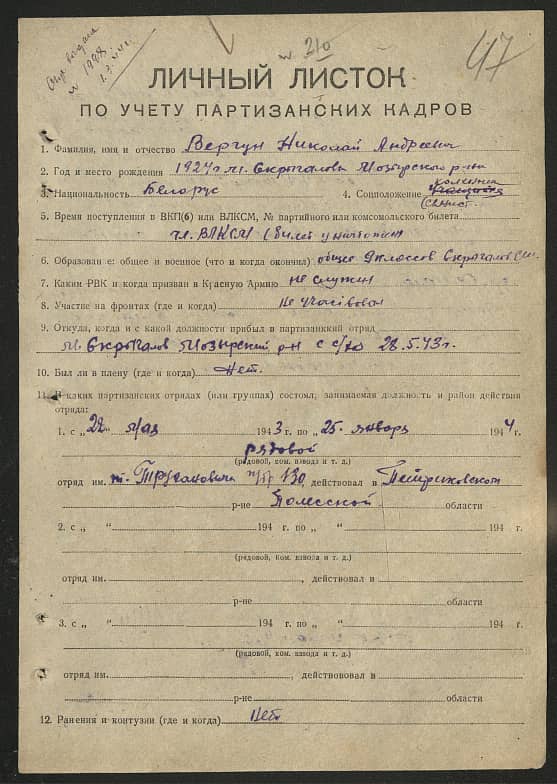 № 1988
№ 210
47
ЛИЧНЫЙ ЛИСТОК
ПО УЧЕТУ ПАРТИЗАНСКИХ КАДРОВ
1. Фамилия, имя и отчество Вергун Николай Андреевич
2. Год и место рождения 1924 г. м. Скрыгалов Мозырского р-на
3. Национальность Белорус 4. Соцположение
5. Время поступления в ВКП(б) или ВЛКСМ, № партийного или комсомольского билета
чл. ВЛКСМ (билет уничтожен)
6. Образован е: общее и военное (что и когда окончил) общее 9 классов Скрыгалов
7. Каким РВК и когда призван в Красную Армию не служил
8. Участие на фронтах (где и когда) не участвовал
9. Откуда, когда и с какой должности прибыл в партизанский отряд
м. Скрыгалов Мозырский р-н с 28.5.43 г.
10. Был ли в плену (где и когда) Нет.
11. В каких партизанских отрядах (или группах) состоял, занимаемая должность и район действия
отряда:
1. с „ 28 мая 1943 г. по „ 25 января 1944 г.
рядовой
(рядовой, ком. взвода и т. д.)
отряд им. т. п/б 130, действовал в Петриковском
р-не Полесской области
2. с „ “ 194 г. по „ “ 194 г.
(рядовой, ком. взвода и т. д.)
отряд им. , действовал в
р-не области
3. с „ “ 194 г. по „ “ 194 г.
(рядовой, ком. взвода и т. д.)
отряд им. , действововал в
р-не области
12. Ранения и контузии (где и когда) Нет